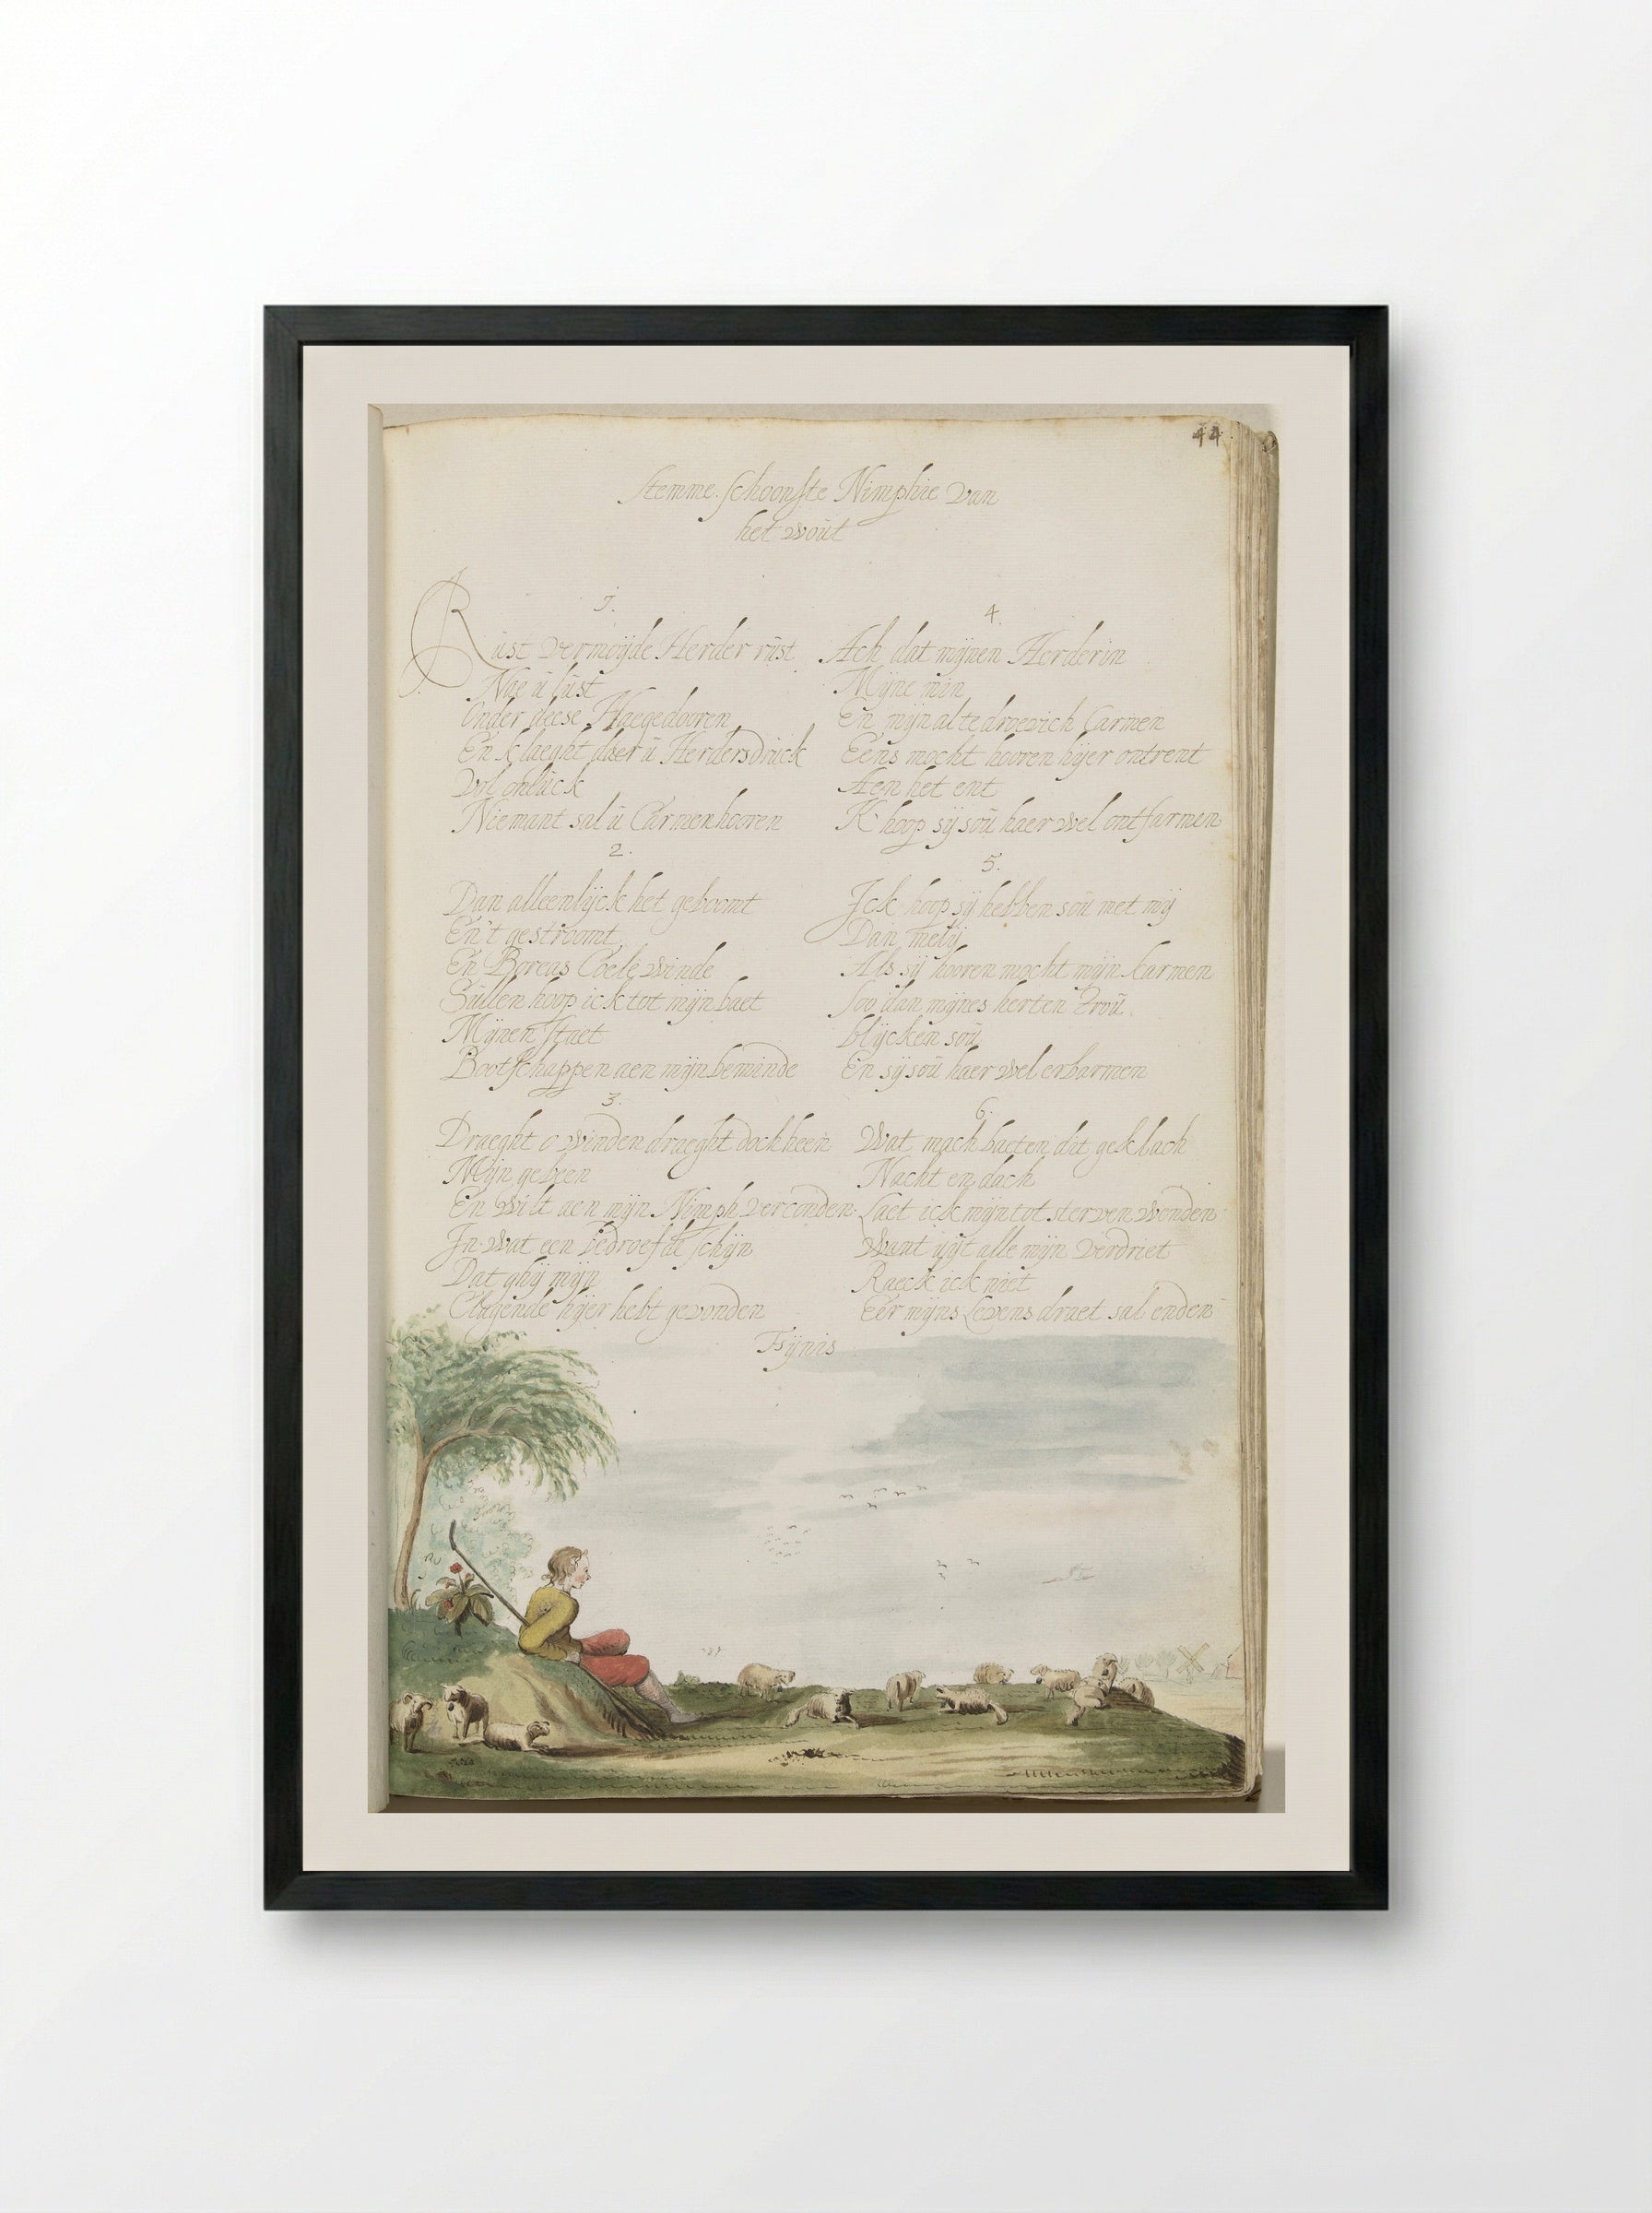 44
Stemme. schoonste Nimphie van
het woūt
1.
Rūst vermoyde Herder rūst
Nae ū lūst
Onder deese Haegedooren
En klaeght daer ū Herdersdrūck
Vol onlūck
Niemant sal ū Carmen hooren
2.
Dan alleenlijck het geboomt
En't gestroomt
En Boreas Coele winde
Sūllen hoop ick tot mijn baet
Mijnen staet
Bootschappen aen mijn beminde
3.
Draeght o winden draeght doch heen
Mijn geween
En wilt aen mijn Nimph verconden
In wat een bedroefde schijn
Dat ghij mijn
Clagende hijer hebt gevonden
4.
Ach dat mijnen Herderin
Mijne min
En mijn al te droevich Carmen
Eens mocht hooren hijer ontrent
Aen het ent
K' hoop sij soū haer wel ontfarmen
5.
Ick hoop sij hebben soū met mij
Dan melij
Als sij hooren mocht mijn karmen
Soo dan mijnes herten trou
blijcken soū
En sij soū haer wel erbarmen
6.
Wat mach baeten dit geklach
Nacht en dach
Laet ick mijn tot sterven wenden
Want uijt alle mijn verdriet
Raeck ick niet
Eer mijns Levens draet sal enden
Fijnis